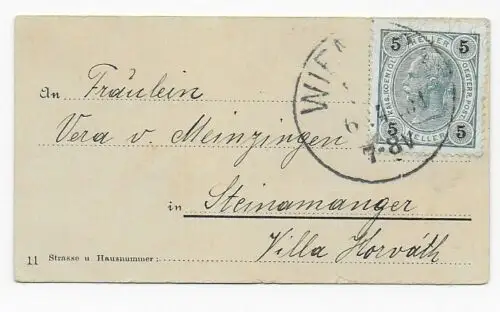 An Fräulein
Vera v. Meinzingen
in Steinamanger
Villa Horváth
11 Strasse u Hausnummer:
5 5
KAIS. KOENIGL. OESTERR. POST
5 HELLER 5
WIEN
7-8V